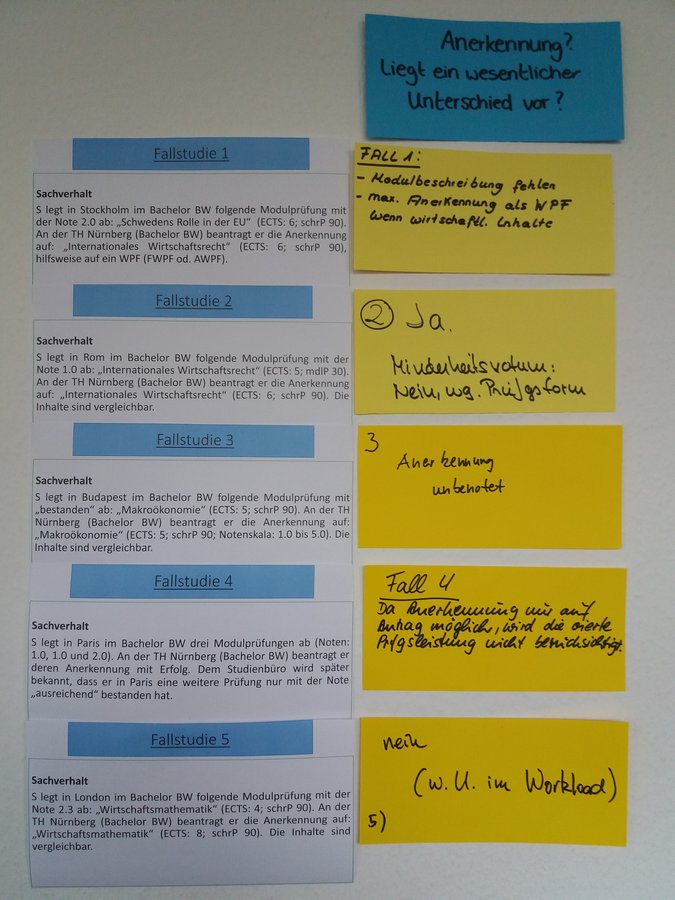 Anerkennung?
Liegt ein wesentlicher
Unterschied vor?
Fallstudie 1
Sachverhalt
S legt in Stockholm im Bachelor BW folgende Modulprüfung mit
der Note 2.0 ab: „Schwedens Rolle in der EU“ (ECTS: 6; schrP 90).
An der TH Nürnberg (Bachelor BW) beantragt er die Anerkennung
auf: „Internationales Wirtschaftsrecht“ (ECTS: 6; schrP 90),
hilfsweise auf ein WPF (FWPF od. AWPF).
FALL 1:
- Modulbeschreibung fehlen
- max. Anerkennung als WPF
wenn wirtschaftl. Inhalte
Fallstudie 2
Sachverhalt
S legt in Rom im Bachelor BW folgende Modulprüfung mit der
Note 1.0 ab: „Internationales Wirtschaftsrecht“ (ECTS: 5; mdlP 30).
An der TH Nürnberg (Bachelor BW) beantragt er die Anerkennung
auf: „Internationales Wirtschaftsrecht“ (ECTS: 6; schrP 90). Die
Inhalte sind vergleichbar.
2 Ja.
Minderheitsvotum:
Nein, wg. Prüfgsform
Fallstudie 3
Sachverhalt
S legt in Budapest im Bachelor BW folgende Modulprüfung mit
„bestanden“ ab: „Makroökonomie“ (ECTS: 5; schrP 90). An der TH
Nürnberg (Bachelor BW) beantragt er die Anerkennung auf:
„Makroökonomie“ (ECTS: 5; schrP 90; Notenskala: 1.0 bis 5.0). Die
Inhalte sind vergleichbar.
3
Anerkennung
unbenotet
Fallstudie 4
Sachverhalt
S legt in Paris im Bachelor BW drei Modulprüfungen ab (Noten:
1.0, 1.0 und 2.0). An der TH Nürnberg (Bachelor BW) beantragt er
deren Anerkennung mit Erfolg. Dem Studienbüro wird später
bekannt, dass er in Paris eine weitere Prüfung nur mit der Note
„ausreichend“ bestanden hat.
Fall 4
Da Anerkennung nur auf
Antrag möglich, wird die vierte
Prüfgsleistung nicht berücksichtigt.
Fallstudie 5
Sachverhalt
S legt in London im Bachelor BW folgende Modulprüfung mit der
Note 2.3 ab: „Wirtschaftsmathematik“ (ECTS: 4; schrP 90). An der
TH Nürnberg (Bachelor BW) beantragt er die Anerkennung auf:
„Wirtschaftsmathematik“ (ECTS: 8; schrP 90). Die Inhalte sind
vergleichbar.
nein
(w. U. im Workload)
5)